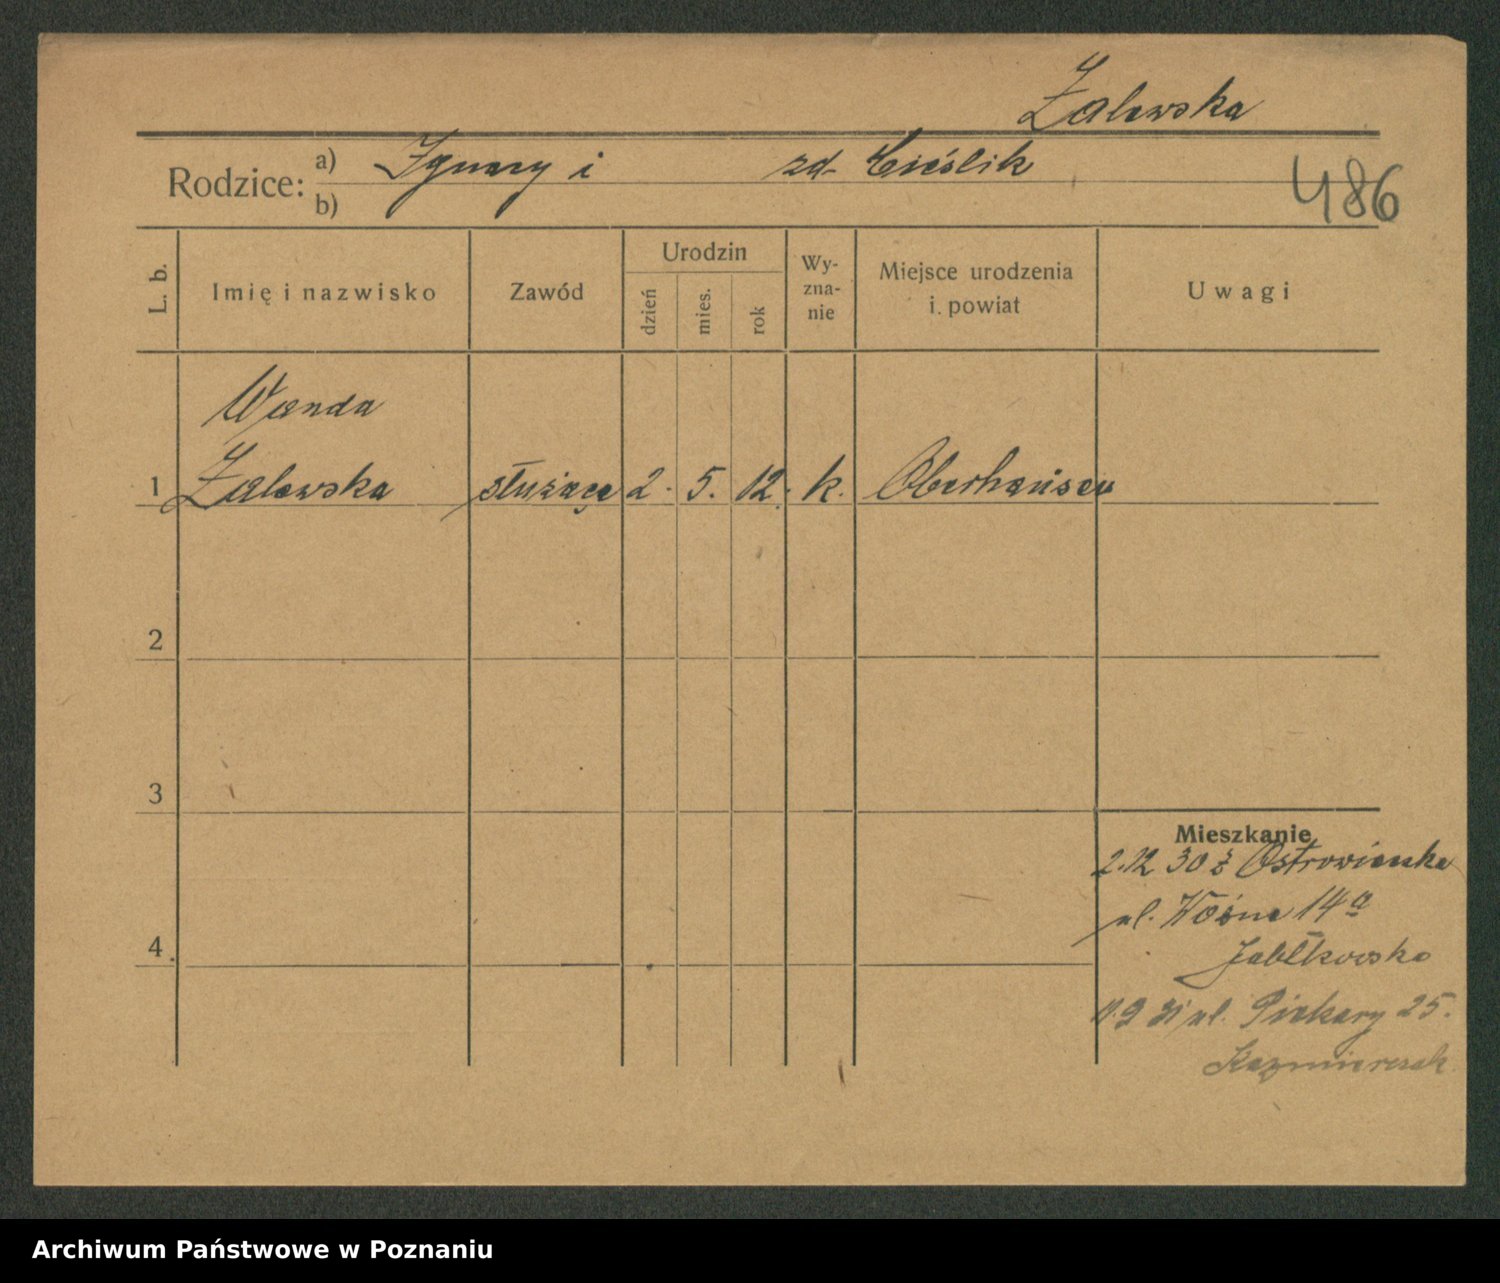 Zalewska
Rodzice: a) Ignacy i zd. Cieślik
b)
486
L. b. Imię i nazwisko Zawód Urodzin dzień mies. rok Wy-zna-nie Miejsce urodzenia i. powiat Uwagi
Wanda
1 Zalewska służąca 2. 5. 12. k. Oberhausen
2
3
Mieszkanie
2.12 30 z Ostrowianka
ul. Woźna 14a
4. Jabłkowska
11.9 31 ul. Piekary 25.
Kazmierczak
Archiwum Państwowe w Poznaniu